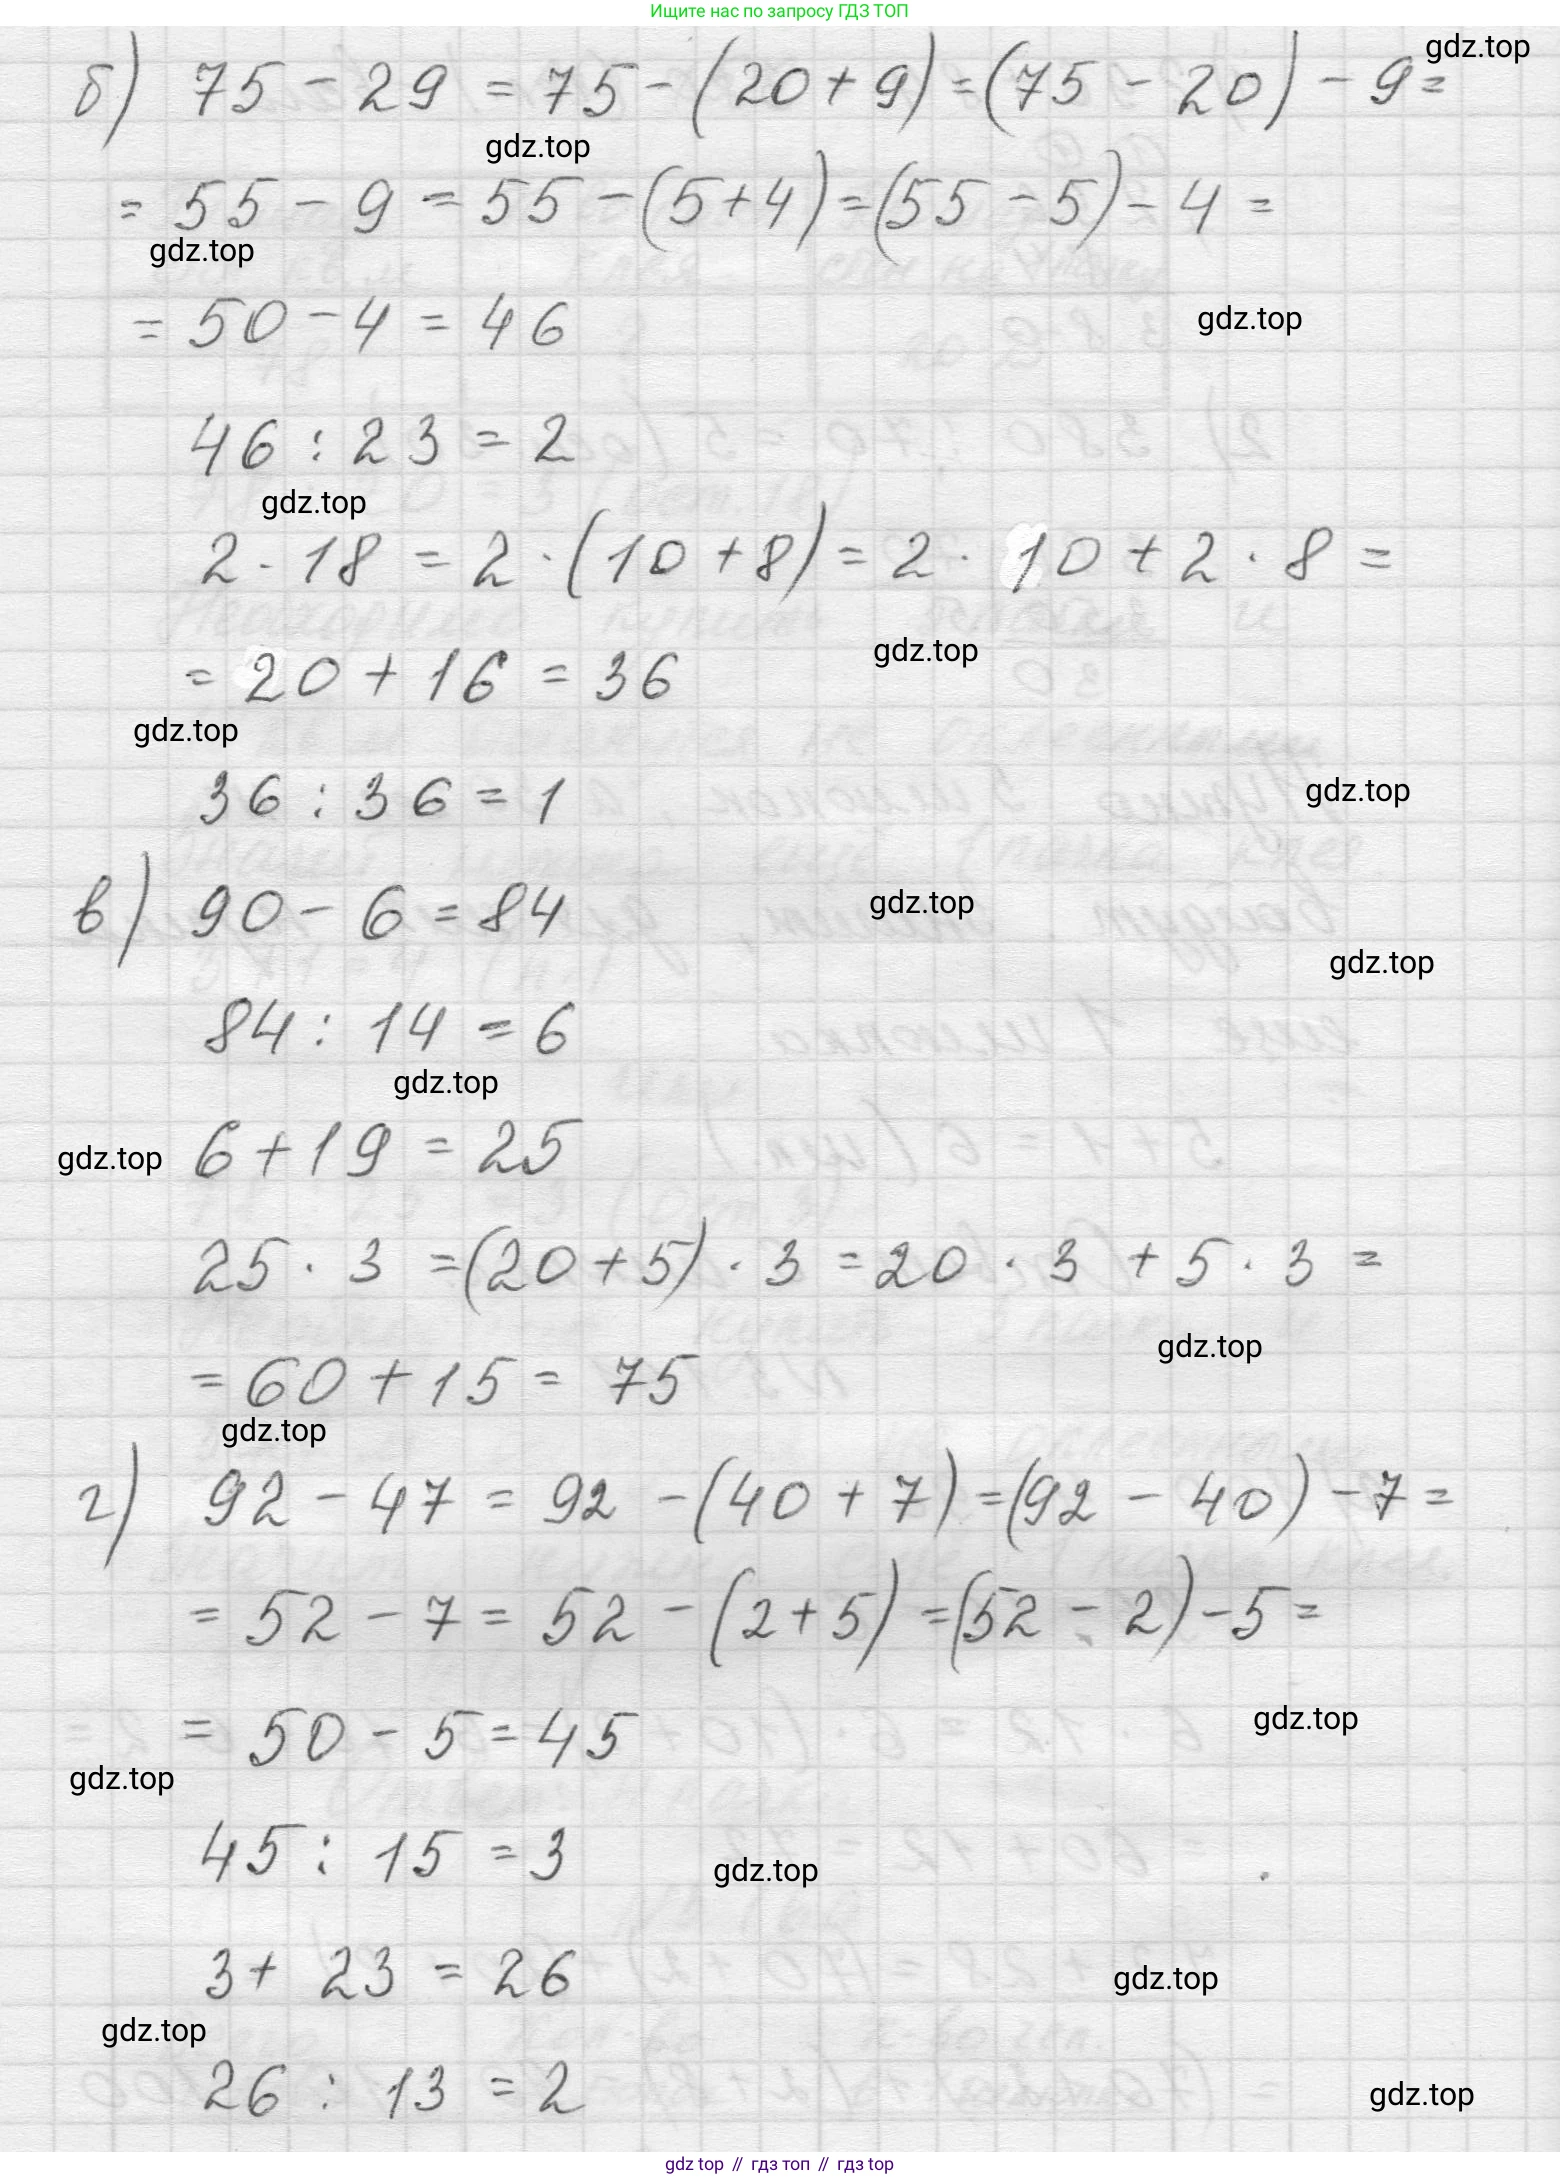 Ищите нас по запросу ГДЗ ТОП
gdz.top
б) 75 - 29 = 75 - (20 + 9) = (75 - 20) - 9 =
gdz.top
= 55 - 9 = 55 - (5+4) = (55 - 5) - 4 =
gdz.top
= 50 - 4 = 46
gdz.top
46 : 23 = 2
gdz.top
2 · 18 = 2 · (10 + 8) = 2 · 10 + 2 · 8 =
gdz.top
= 20 + 16 = 36
gdz.top
36 : 36 = 1
gdz.top
в) 90 - 6 = 84
gdz.top
gdz.top
84 : 14 = 6
gdz.top
gdz.top 6 + 19 = 25
25 · 3 = (20 + 5) · 3 = 20 · 3 + 5 · 3 =
gdz.top
= 60 + 15 = 75
gdz.top
г) 92 - 47 = 92 - (40 + 7) = (92 - 40) - 7 =
= 52 - 7 = 52 - (2 + 5) = (52 - 2) - 5 =
= 50 - 5 = 45
gdz.top
gdz.top
45 : 15 = 3
gdz.top
3 + 23 = 26
gdz.top
gdz.top
26 : 13 = 2
gdz.top
gdz top // гдз топ // гдз top